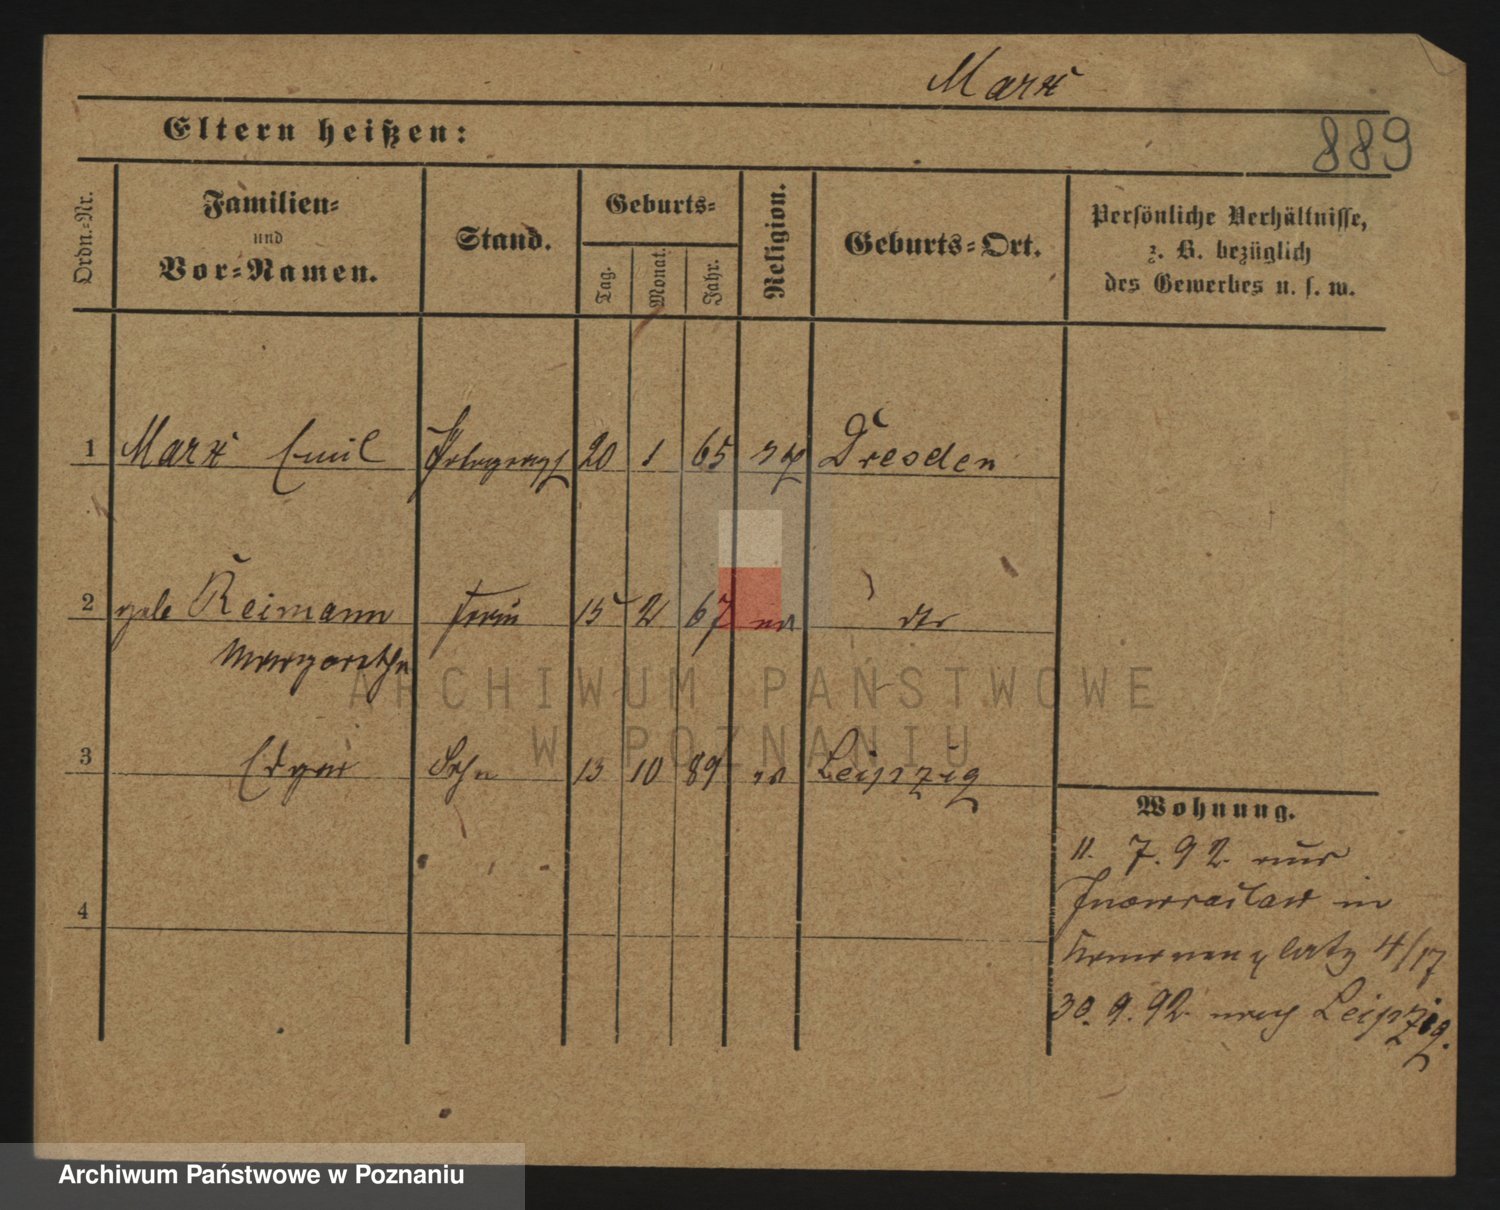 Marx
Eltern heißen:
889
Ordn.-Nr.
Familien-
und
Vor-Namen.
Stand.
Geburts-
Tag.
Monat.
Jahr.
Religion.
Geburts-Ort.
Persönliche Verhältnisse,
z. B. bezüglich
des Gewerbes u. s. w.
1 Marx Emil Photograph 20 1 65 Dresden
2 geb Reimann Frau 15 2 67 dto
Margarethe
3 Edgar Sohn 13 10 89 Leipzig
4
Wohnung.
11. 7. 92 aus
Inowrazlaw in
4/17
30. 9. 92 nach Leipzig.
ARCHIWUM PAŃSTWOWE
W POZNANIU
Archiwum Państwowe w Poznaniu